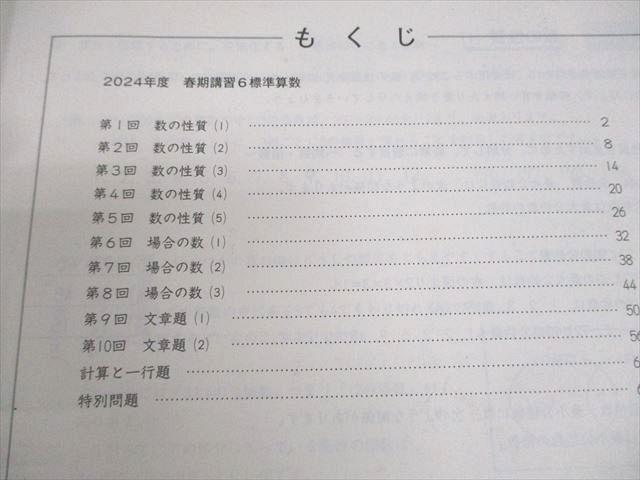 もくじ
2024年度 春期講習6標準算数
第1回 数の性質(1) 2
第2回 数の性質(2) 8
第3回 数の性質(3) 14
第4回 数の性質(4) 20
第5回 数の性質(5) 26
第6回 場合の数(1) 32
第7回 場合の数(2) 38
第8回 場合の数(3) 44
第9回 文章題(1) 50
第10回 文章題(2) 56
計算と一行題 6
特別問題